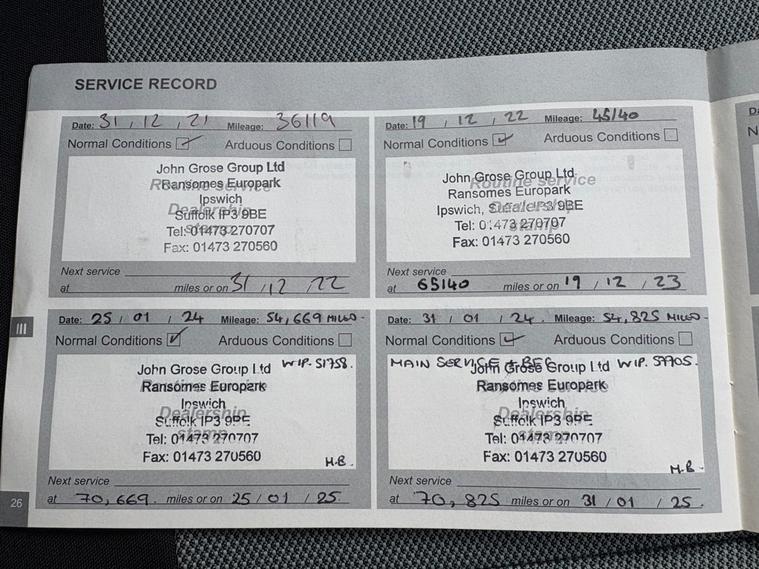 SERVICE RECORD
Date: 31 / 12 / 21 Mileage: 36119
Normal Conditions ✓ Arduous Conditions
Routine service
Dealership
stamp
John Grose Group Ltd
Ransomes Europark
Ipswich
Suffolk IP3 9BE
Tel: 01473 270707
Fax: 01473 270560
Next service
at miles or on 31 / 12 / 22
Date: 19 / 12 / 22 Mileage: 45140
Normal Conditions ✓ Arduous Conditions
Routine service
Dealership
stamp
John Grose Group Ltd
Ransomes Europark
Ipswich, Suffolk IP3 9BE
Tel: 01473 270707
Fax: 01473 270560
Next service
at 65140 miles or on 19 / 12 / 23
III
Date: 25 / 01 / 24 Mileage: 54,669 MILES-
Normal Conditions ✓ Arduous Conditions
WIP. 51758.
Dealership
stamp
John Grose Group Ltd
Ransomes Europark
Ipswich
Suffolk IP3 9BE
Tel: 01473 270707
Fax: 01473 270560
M.B-
Next service
at 70,669. miles or on 25 / 01 / 25.
Date: 31 / 01 / 24. Mileage: 54,825 MILES-
Normal Conditions ✓ Arduous Conditions
MAIN SERVICE + WIP. 59905.
Dealership
stamp
John Grose Group Ltd
Ransomes Europark
Ipswich
Suffolk IP3 9BE
Tel: 01473 270707
Fax: 01473 270560
M.B-
Next service
at 70,825 miles or on 31 / 01 / 25.
26